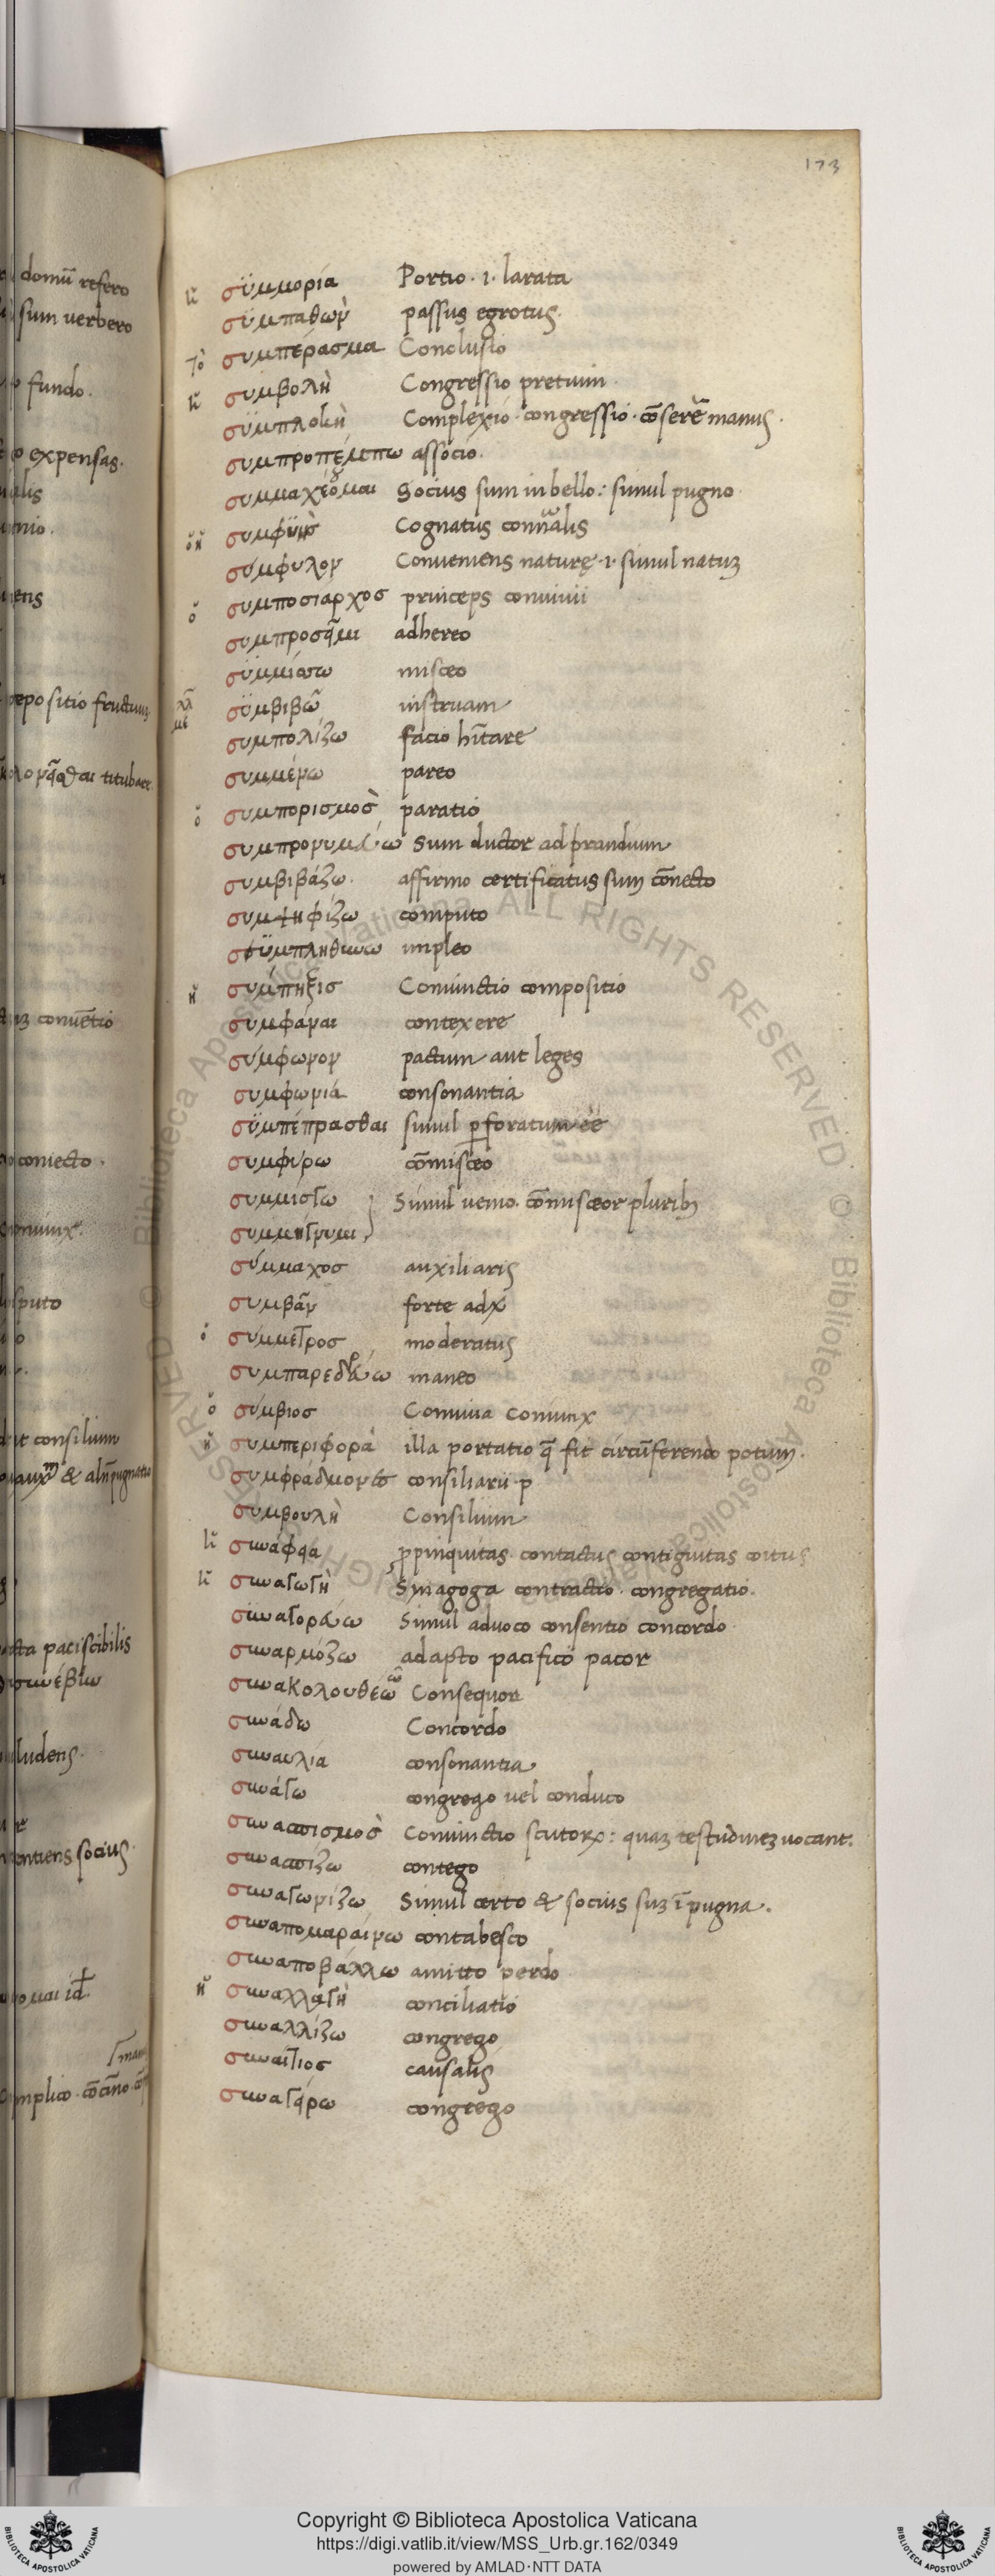 173
domū refero
sum uerbero
fundo.
expensas.
ens
depositio fructuum
titubare
conuētio
coniecto.
sputo
consilium
pacta paciscibilis
συνέβιω
ludens.
sentiens socius
ἡ συμμορία Portio .i. larata
συμπαθῶν passus egrotus.
τὸ συμπέρασμα Conclusio
ἡ συμβολὴ Congressio pretium.
συμπλοκὴ Complexio. congressio. cōserĕ manus.
συμπροπέμπω associo.
συμμαχέομαι Socius sum in bello: simul pugno
ὁ ἡ συμφυὴς Cognatus
σύμφυλον Conueniens naturę .i. simul natuȝ
ὁ συμποσιαρχος princeps conuiuii
adhereo
misceo
συμβιβῶ instruam
συμπολίζω facio hītare
συμμένω pareo
ὁ συμπορισμὸς paratio
Sum ductor ad prandium
συμβιβάζω. affirmo certificatus sum cōnecto
συμψηφίζω computo
impleo
ἡ σύμπηξις Coniunctio compositio
συμφάναι contexere
σύμφωνον pactum aut leges
συμφωνία consonantia
συμπέπρασθαι simul ꝑforatum eē
συμφύρω cōmisceo
συμμίσγω Simul uenio. cōmisceor pluribȝ
συμμήγνυμι
σύμμαχος auxiliaris
συμβᾶν forte
ὁ σύμμετρος moderatus
συμπαρεδράω maneo
ὁ σύμβιος Conuiua coniunx
ἡ συμπεριφορὰ illa portatio q̄ fit circūferendo potum.
συμφράδμονες consiliarii .p
συμβουλὴ Consilium
ἡ συνάφεια ꝓpinquitas. contactus contiguitas coitus
ἡ συναγωγὴ Sinagoga contractio. congregatio.
συναγοράω Simul aduoco consentio concordo.
συναρμόζω adapto pacifico pacor
συνακολουθέω ῶ Consequor
συνάδω Concordo
συναυλία consonantia
συνάγω congrego uel conduco
συνασπισμὸς Coniunctio scutorꝝ: quaȝ testudineȝ uocant.
συνασπίζω contego
συναγωνίζω Simul certo & socius suȝ ī pugna.
συναπομαραίνω contabesco
συναποβάλλω amitto perdo
ἡ συναλλαγὴ conciliatio
συναλλίζω congrego
συναίτιος causalis
συναγείρω congrego
Copyright © Biblioteca Apostolica Vaticana
https://digi.vatlib.it/view/MSS_Urb.gr.162/0349
powered by AMLAD·NTT DATA